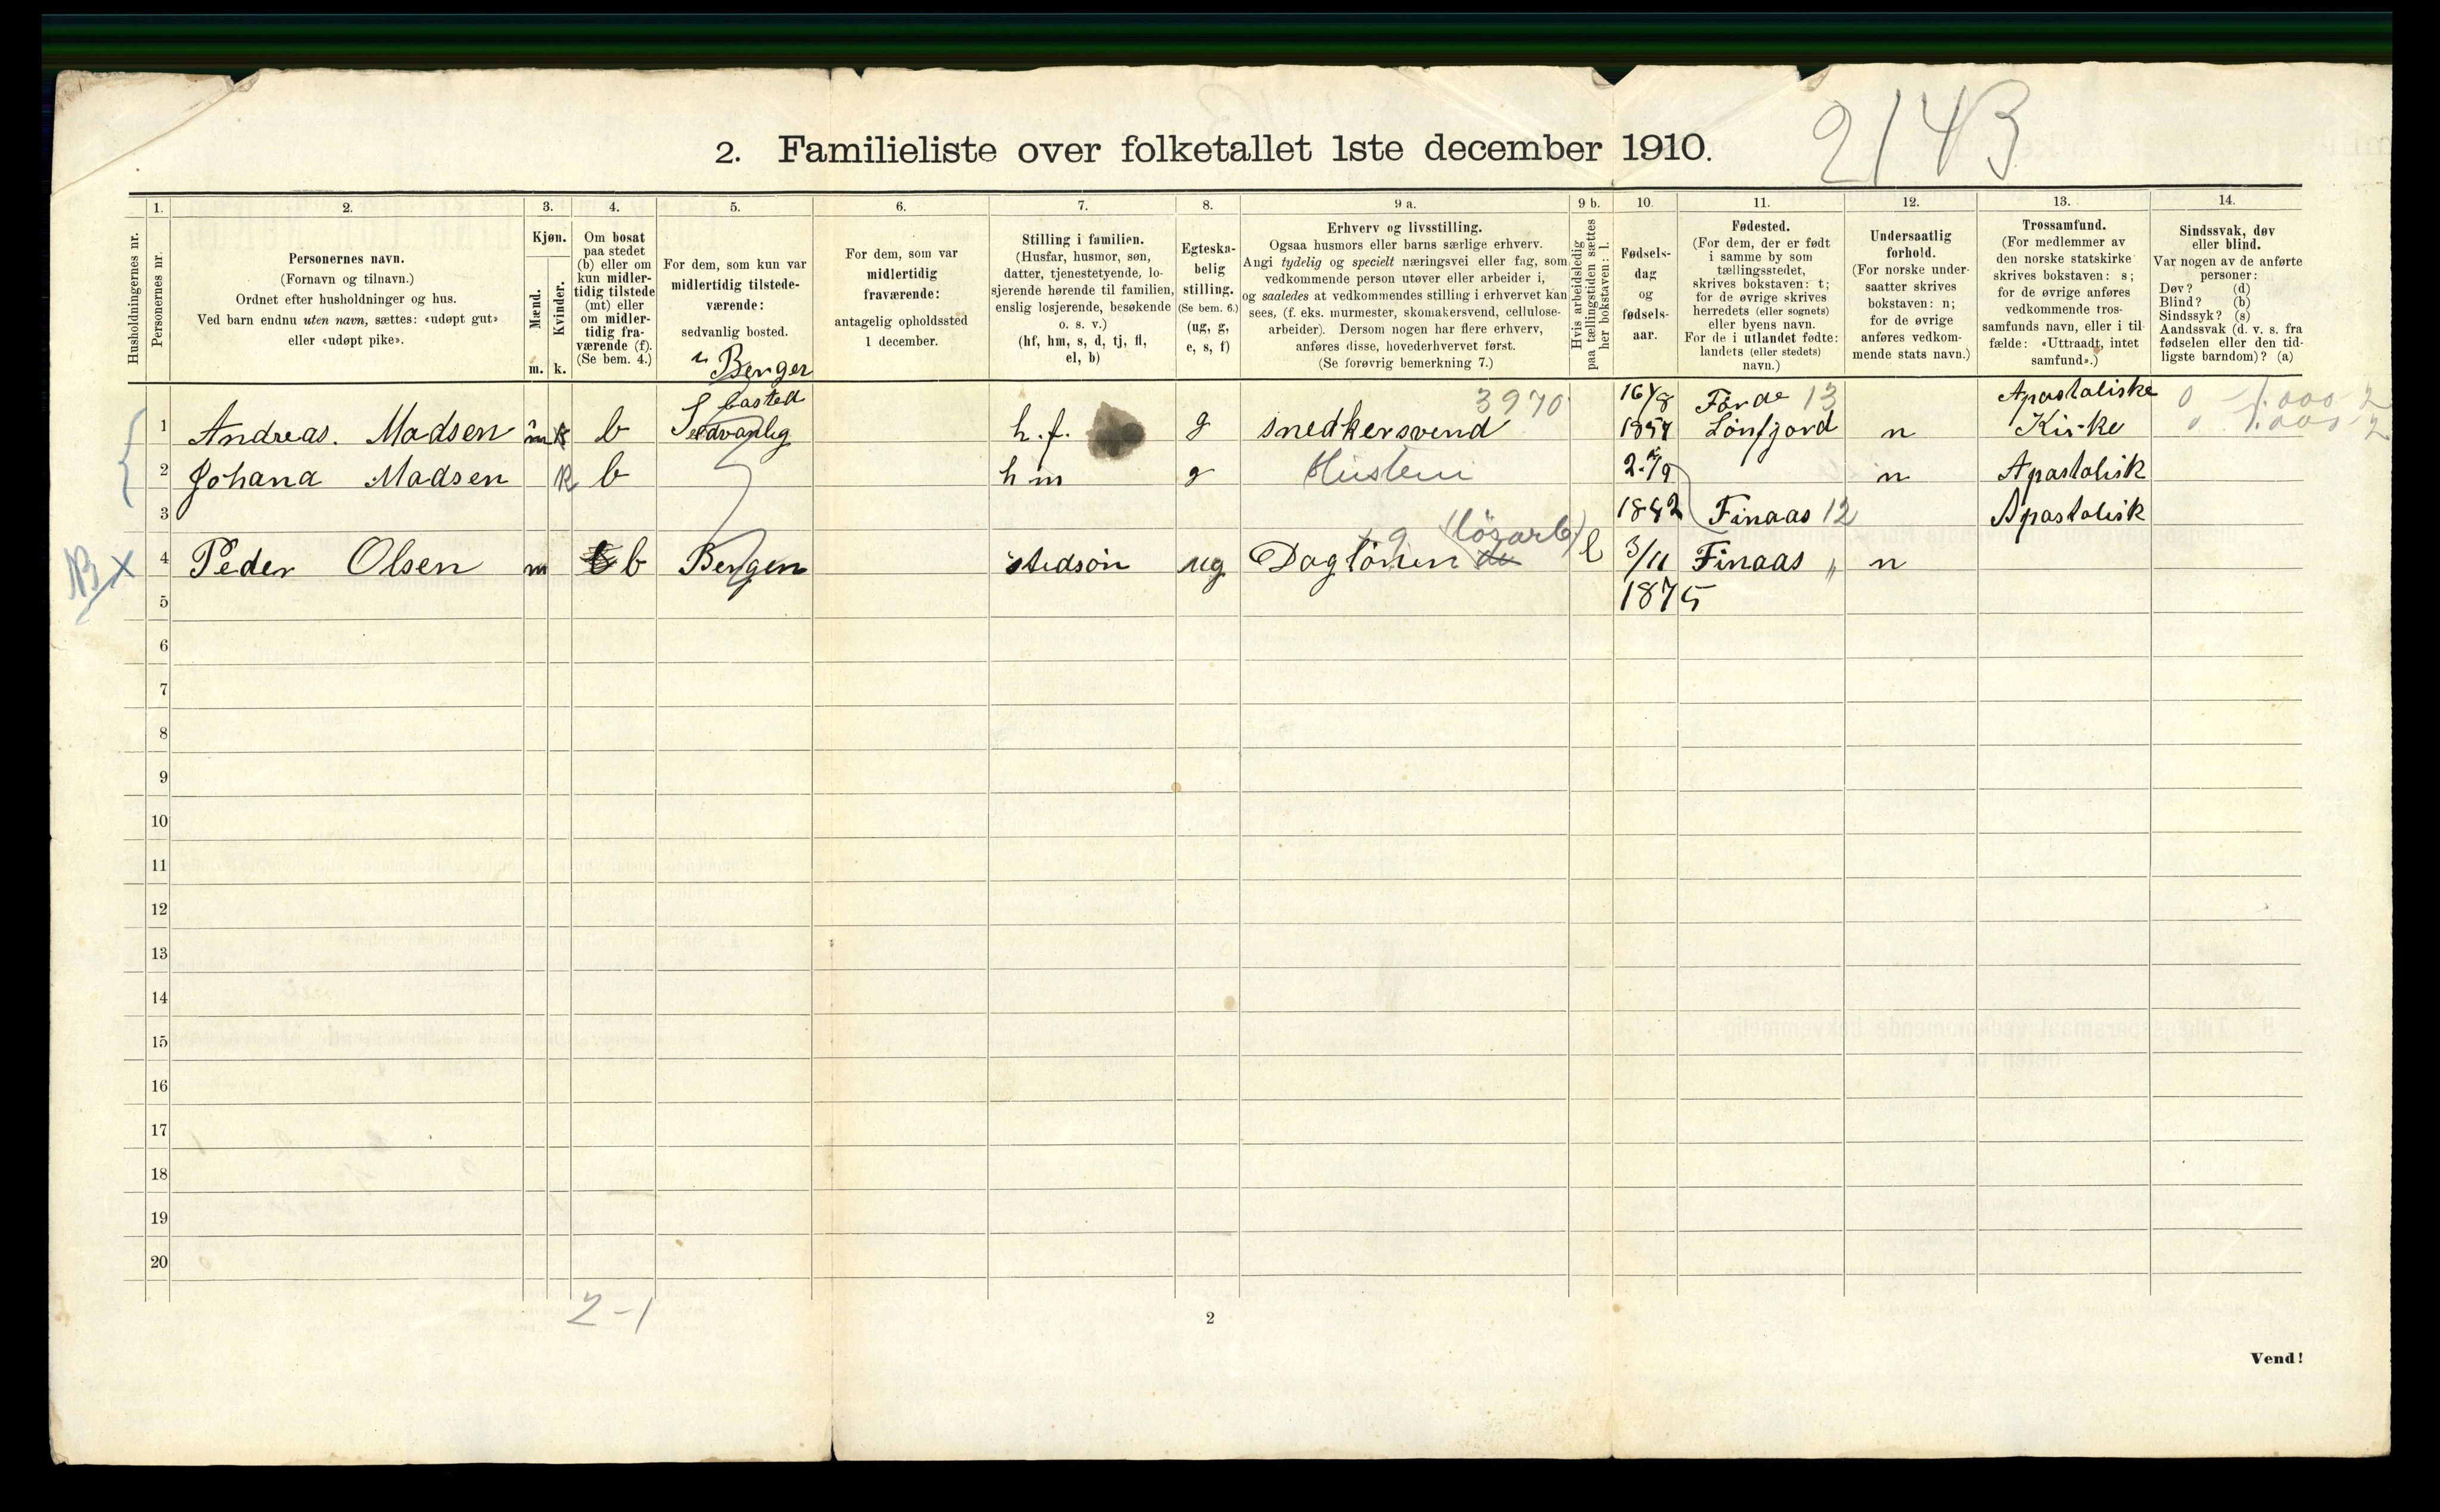 2143
2. Familieliste over folketallet 1ste december 1910.
Husholdningernes nr.
1.
Personernes nr.
2.
Personernes navn.
(Fornavn og tilnavn.)
Ordnet efter husholdninger og hus.
Ved barn endnu uten navn, sættes: «udøpt gut»
eller «udøpt pike».
3.
Kjøn.
Mænd.
Kvinder.
m. k.
4.
Om bosat
paa stedet
(b) eller om
kun midler-
tidig tilstede
(mt) eller
om midler-
tidig fra-
værende (f).
(Se bem. 4.)
5.
For dem, som kun var
midlertidig tilstede-
værende:
sedvanlig bosted.
6.
For dem, som var
midlertidig
fraværende:
antagelig opholdssted
1 december.
7.
Stilling i familien.
(Husfar, husmor, søn,
datter, tjenestetyende, lo-
sjerende hørende til familien,
enslig losjerende, besøkende
o. s. v.)
(hf, hm, s, d, tj, fl,
el, b)
8.
Egteska-
belig
stilling.
(Se bem. 6.)
(ug, g,
e, s, f)
9 a.
Erhverv og livsstilling.
Ogsaa husmors eller barns særlige erhverv.
Angi tydelig og specielt næringsvei eller fag, som
vedkommende person utøver eller arbeider i,
og saaledes at vedkommendes stilling i erhvervet kan
sees, (f. eks. murmester, skomakersvend, cellulose-
arbeider). Dersom nogen har flere erhverv,
anføres disse, hovederhvervet først.
(Se forøvrig bemerkning 7.)
9 b.
Hvis arbeidsledig
paa tællingstiden sættes
her bokstaven: l.
10.
Fødsels-
dag
og
fødsels-
aar.
11.
Fødested.
(For dem, der er født
i samme by som
tællingsstedet,
skrives bokstaven: t;
for de øvrige skrives
herredets (eller sognets)
eller byens navn.
For de i utlandet fødte:
landets (eller stedets)
navn.)
12.
Undersaatlig
forhold.
(For norske under-
saatter skrives
bokstaven: n;
for de øvrige
anføres vedkom-
mende stats navn.)
13.
Trossamfund.
(For medlemmer av
den norske statskirke
skrives bokstaven: s;
for de øvrige anføres
vedkommende tros-
samfunds navn, eller i til-
fælde: «Uttraadt, intet
samfund».)
14.
Sindssvak, døv
eller blind.
Var nogen av de anførte
personer:
Døv? (d)
Blind? (b)
Sindssyk? (s)
Aandssvak (d. v. s. fra
fødselen eller den tid-
ligste barndom)? (a)
Berger
bosted
3970 16/8 Førde 13 Apostoliske
1 Andreas. Madsen m b Sedvanlig h.f. g snedkersvend 1857 Lönfjord n Kirke
2 Johana Madsen k b h m g Hustru 2/9 n Apastolisk
3 1842 Finaas 12 Apastolisk
(lösarb)
NB x 4 Peder Olsen m b Bergen stedsön ug Daglönen l 3/11 Finaas " n
5 1875
6
7
8
9
10
11
12
13
14
15
16
17
18
19
20
2-1
2
Vend!